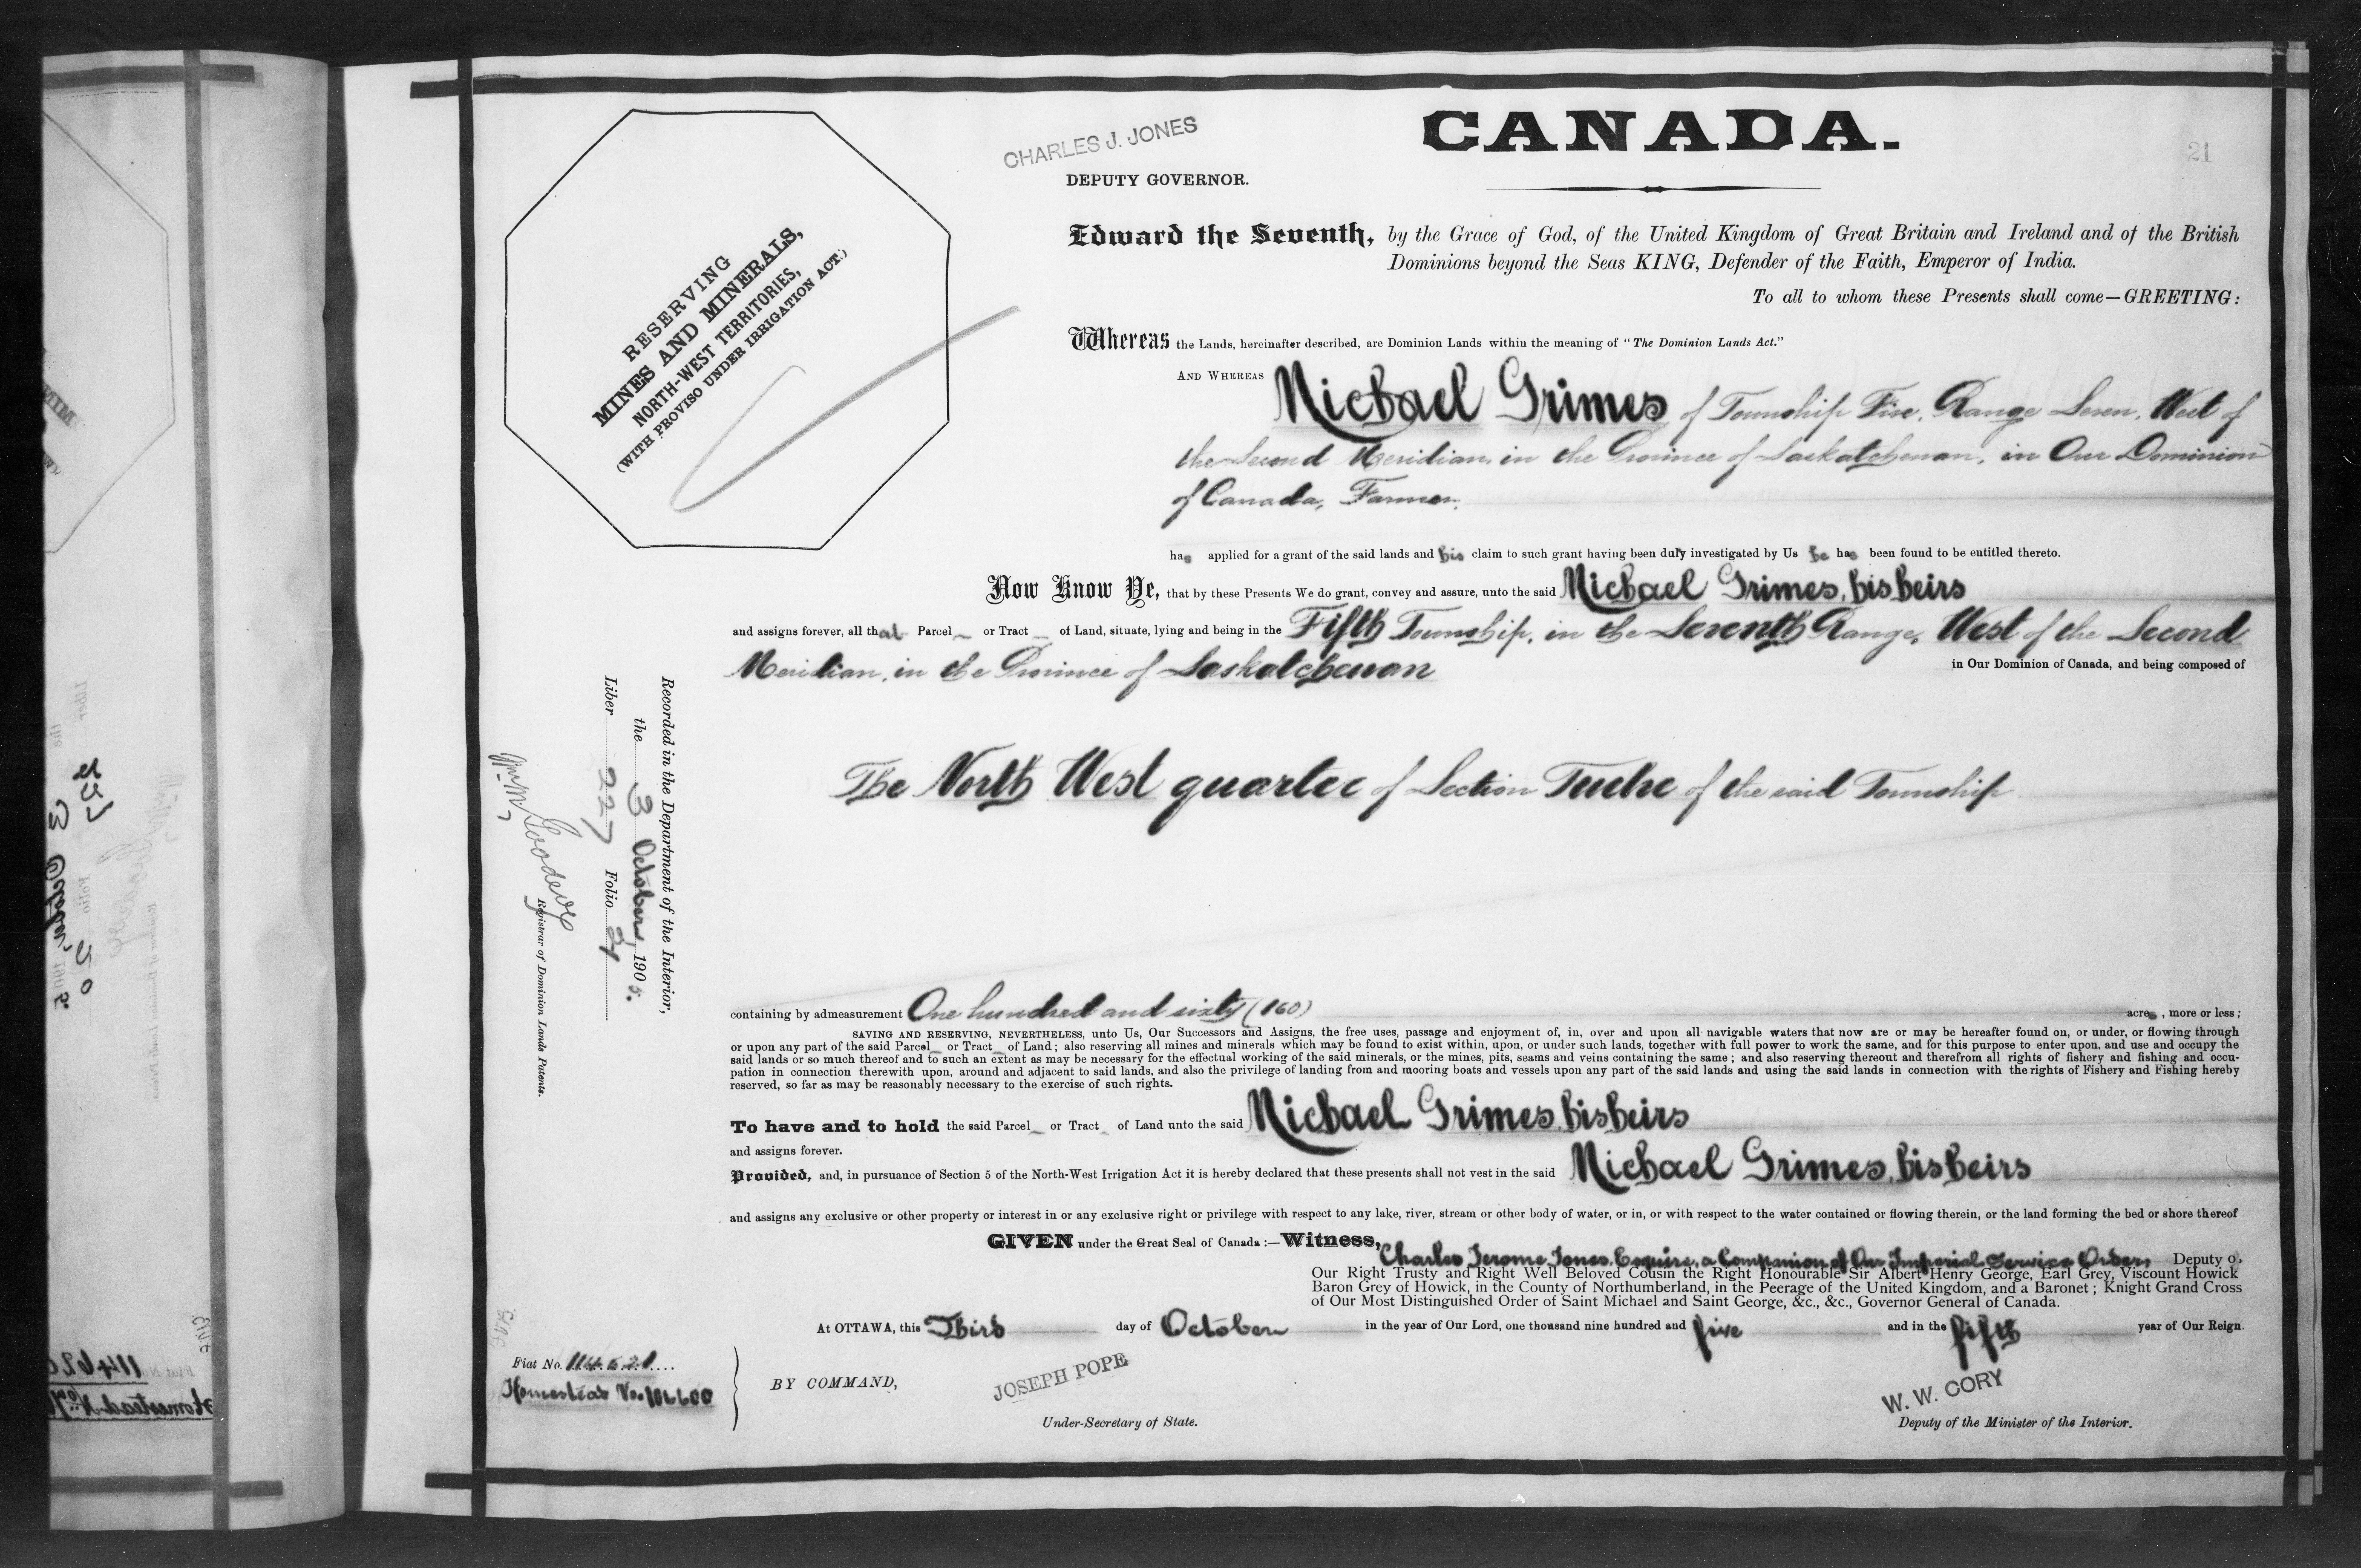 CHARLES J. JONES
DEPUTY GOVERNOR.
CANADA.
21
RESERVING
MINES AND MINERALS,
NORTH-WEST TERRITORIES,
(WITH PROVISO UNDER IRRIGATION ACT.)
Edward the Seventh, by the Grace of God, of the United Kingdom of Great Britain and Ireland and of the British
Dominions beyond the Seas KING, Defender of the Faith, Emperor of India.
To all to whom these Presents shall come—GREETING:
Whereas the Lands, hereinafter described, are Dominion Lands within the meaning of "The Dominion Lands Act."
AND WHEREAS Michael Grimes of Township Five, Range Seven, West of
the Second Meridian, in the Province of Saskatchewan, in Our Dominion
of Canada, Farmer,
has applied for a grant of the said lands and his claim to such grant having been duly investigated by Us he has been found to be entitled thereto.
Now Know Ye, that by these Presents We do grant, convey and assure, unto the said Michael Grimes, his heirs
and assigns forever, all that Parcel or Tract of Land, situate, lying and being in the Fifth Township, in the Seventh Range, West of the Second
Meridian, in the Province of Saskatchewan in Our Dominion of Canada, and being composed of
The North West quarter of Section Twelve of the said Township
Recorded in the Department of the Interior,
the 3 October, 1905.
Liber 227 Folio 21
Wm M Goodeve
Registrar of Dominion Lands Patents.
containing by admeasurement One hundred and sixty (160) acres, more or less;
SAVING AND RESERVING, NEVERTHELESS, unto Us, Our Successors and Assigns, the free uses, passage and enjoyment of, in, over and upon all navigable waters that now are or may be hereafter found on, or under, or flowing through
or upon any part of the said Parcel or Tract of Land; also reserving all mines and minerals which may be found to exist within, upon, or under such lands, together with full power to work the same, and for this purpose to enter upon, and use and occupy the
said lands or so much thereof and to such an extent as may be necessary for the effectual working of the said minerals, or the mines, pits, seams and veins containing the same; and also reserving thereout and therefrom all rights of fishery and fishing and occu-
pation in connection therewith upon, around and adjacent to said lands, and also the privilege of landing from and mooring boats and vessels upon any part of the said lands and using the said lands in connection with the rights of Fishery and Fishing hereby
reserved, so far as may be reasonably necessary to the exercise of such rights.
To have and to hold the said Parcel or Tract of Land unto the said Michael Grimes, his heirs
and assigns forever.
Provided, and, in pursuance of Section 5 of the North-West Irrigation Act it is hereby declared that these presents shall not vest in the said Michael Grimes, his heirs
and assigns any exclusive or other property or interest in or any exclusive right or privilege with respect to any lake, river, stream or other body of water, or in, or with respect to the water contained or flowing therein, or the land forming the bed or shore thereof
GIVEN under the Great Seal of Canada:—Witness, Charles Jerome Jones, Esquire, a Companion of Our Imperial Service Order, Deputy o,
Our Right Trusty and Right Well Beloved Cousin the Right Honourable Sir Albert Henry George, Earl Grey, Viscount Howick
Baron Grey of Howick, in the County of Northumberland, in the Peerage of the United Kingdom, and a Baronet; Knight Grand Cross
of Our Most Distinguished Order of Saint Michael and Saint George, &c., &c., Governor General of Canada.
At OTTAWA, this Third day of October in the year of Our Lord, one thousand nine hundred and five and in the fifth year of Our Reign.
Fiat No. 114621
Homestead No. 106600
BY COMMAND,
JOSEPH POPE
Under-Secretary of State.
W. W. CORY
Deputy of the Minister of the Interior.